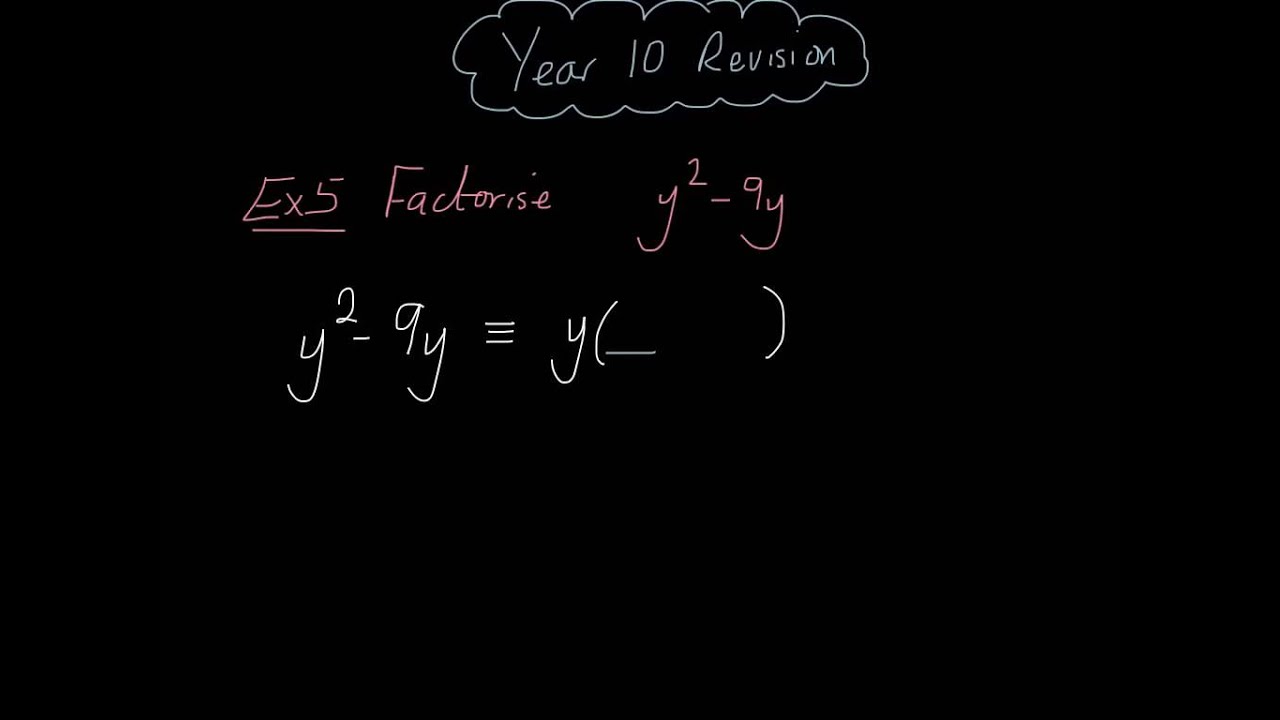 Year 10 Revision
Ex5 Factorise y² - 9y
y² - 9y ≡ y(_ )